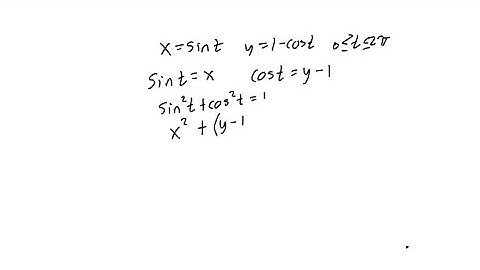 x = sint y = 1-cost 0≤t≤2π
sint = x cost = y-1
sin²t + cos²t = 1
x² + (y-1